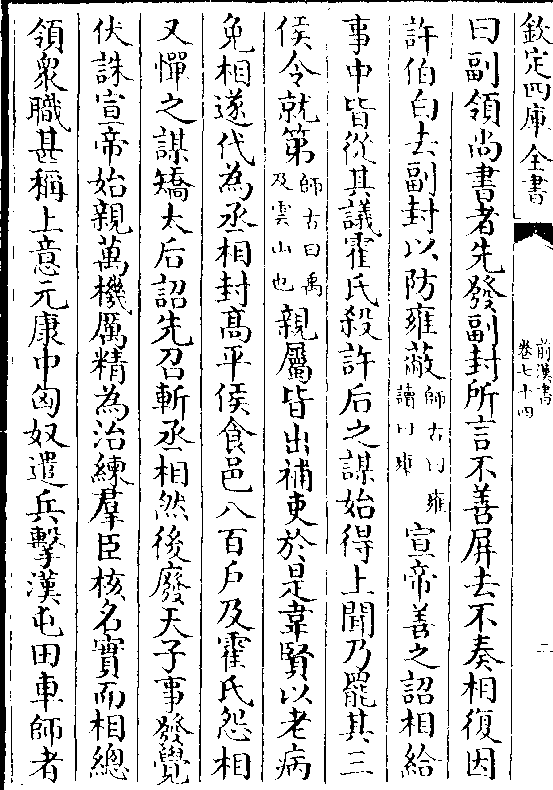 欽定四庫全書
前漢書
卷七十四
二
曰副領尚書者先發副封所言不善屏去不奏相復因
許伯白去副封以防雍蔽師古曰雍讀曰壅宣帝善之詔相給
事中皆從其議霍氏殺許后之謀始得上聞乃罷其三
侯令就第師古曰禹及雲山也親屬皆出補吏於是韋賢以老病
免相遂代為丞相封高平侯食邑八百戶及霍氏怨相
又憚之謀矯太后詔先召斬丞相然後廢天子事發覺
伏誅宣帝始親萬機厲精為治練羣臣核名實而相總
領衆職甚稱上意元康中匈奴遣兵擊漢屯田車師者